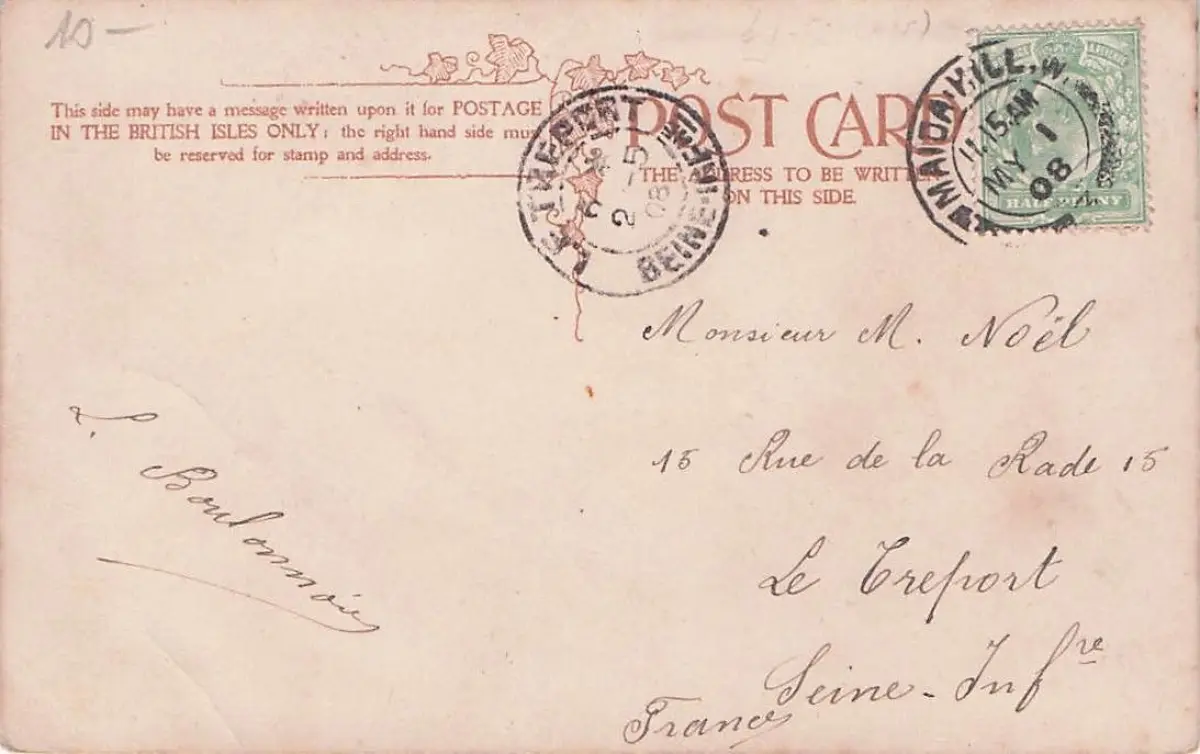 10-
This side may have a message written upon it for POSTAGE
IN THE BRITISH ISLES ONLY; the right hand side must
be reserved for stamp and address.
POST CARD
THE ADDRESS TO BE WRITTEN
ON THIS SIDE.
LE TREPORT
2 -5
08
SEINE-INFRE
MAIDA HILL. W.
11.15 AM
MY 1
08
HALFPENNY
Monsieur M. Noël
15 Rue de la Rade 15
Le Treport
Seine-Infre
France
L. Boulonnois